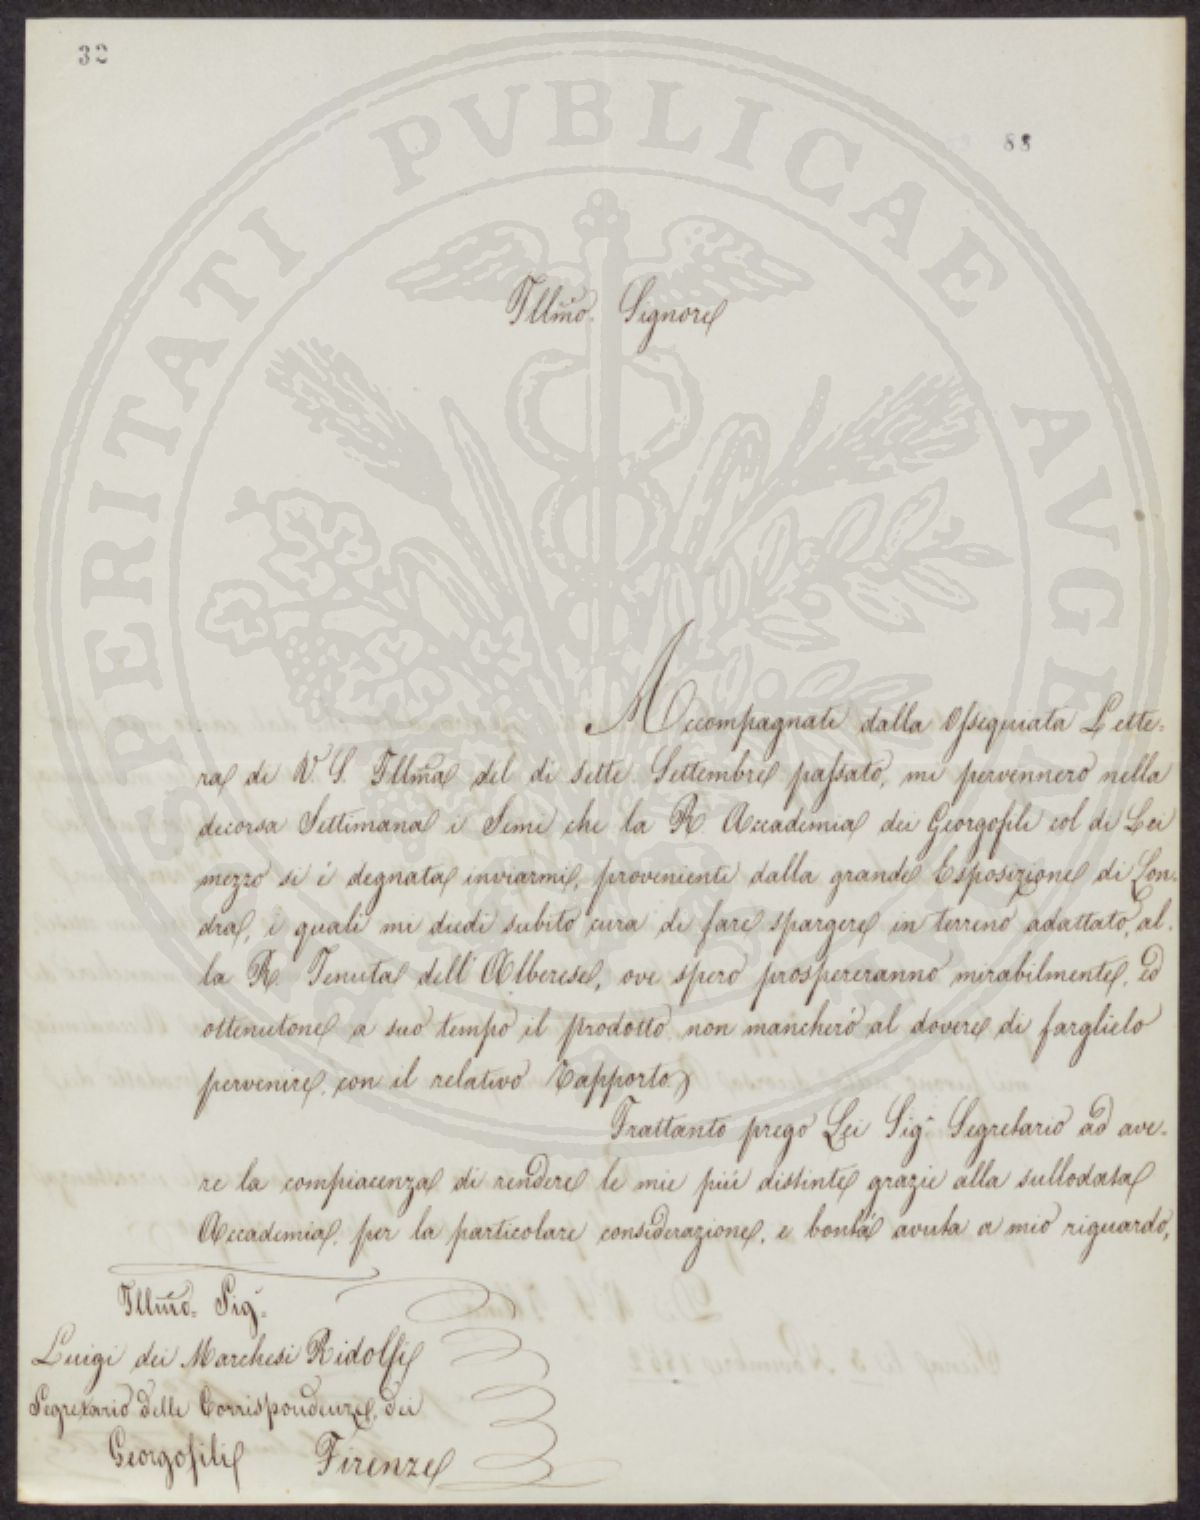 32
88
Illmo. Signore
Accompagnati dalla Ossequiata Lette=
ra di V. S. Illma del di sette Settembre passato, mi pervennero nella
decorsa Settimana i Semi che la R. Accademia dei Georgofili col di Lei
mezzo si è degnata inviarmi, provenienti dalla grande Esposizione di Lon=
dra, i quali mi diedi subito cura di fare spargere in terreno adattato, al=
la R. Tenuta dell'Alberese, ove spero prospereranno mirabilmente, ed
ottenutone a suo tempo il prodotto non mancherò al dovere di farglielo
pervenire, con il relativo Rapporto.
Trattanto prego Lei Sigr. Segretario ad ave=
re la compiacenza di rendere le mie più distinte grazie alla sullodata
Accademia, per la particolare considerazione, e bontà avuta a mio riguardo,
Illmo. Sigr.
Luigi dei Marchesi Ridolfi
Segretario delle Corrispondenze, dei
Georgofili Firenze
PROSPERITATI PVBLICAE AVGENDAE